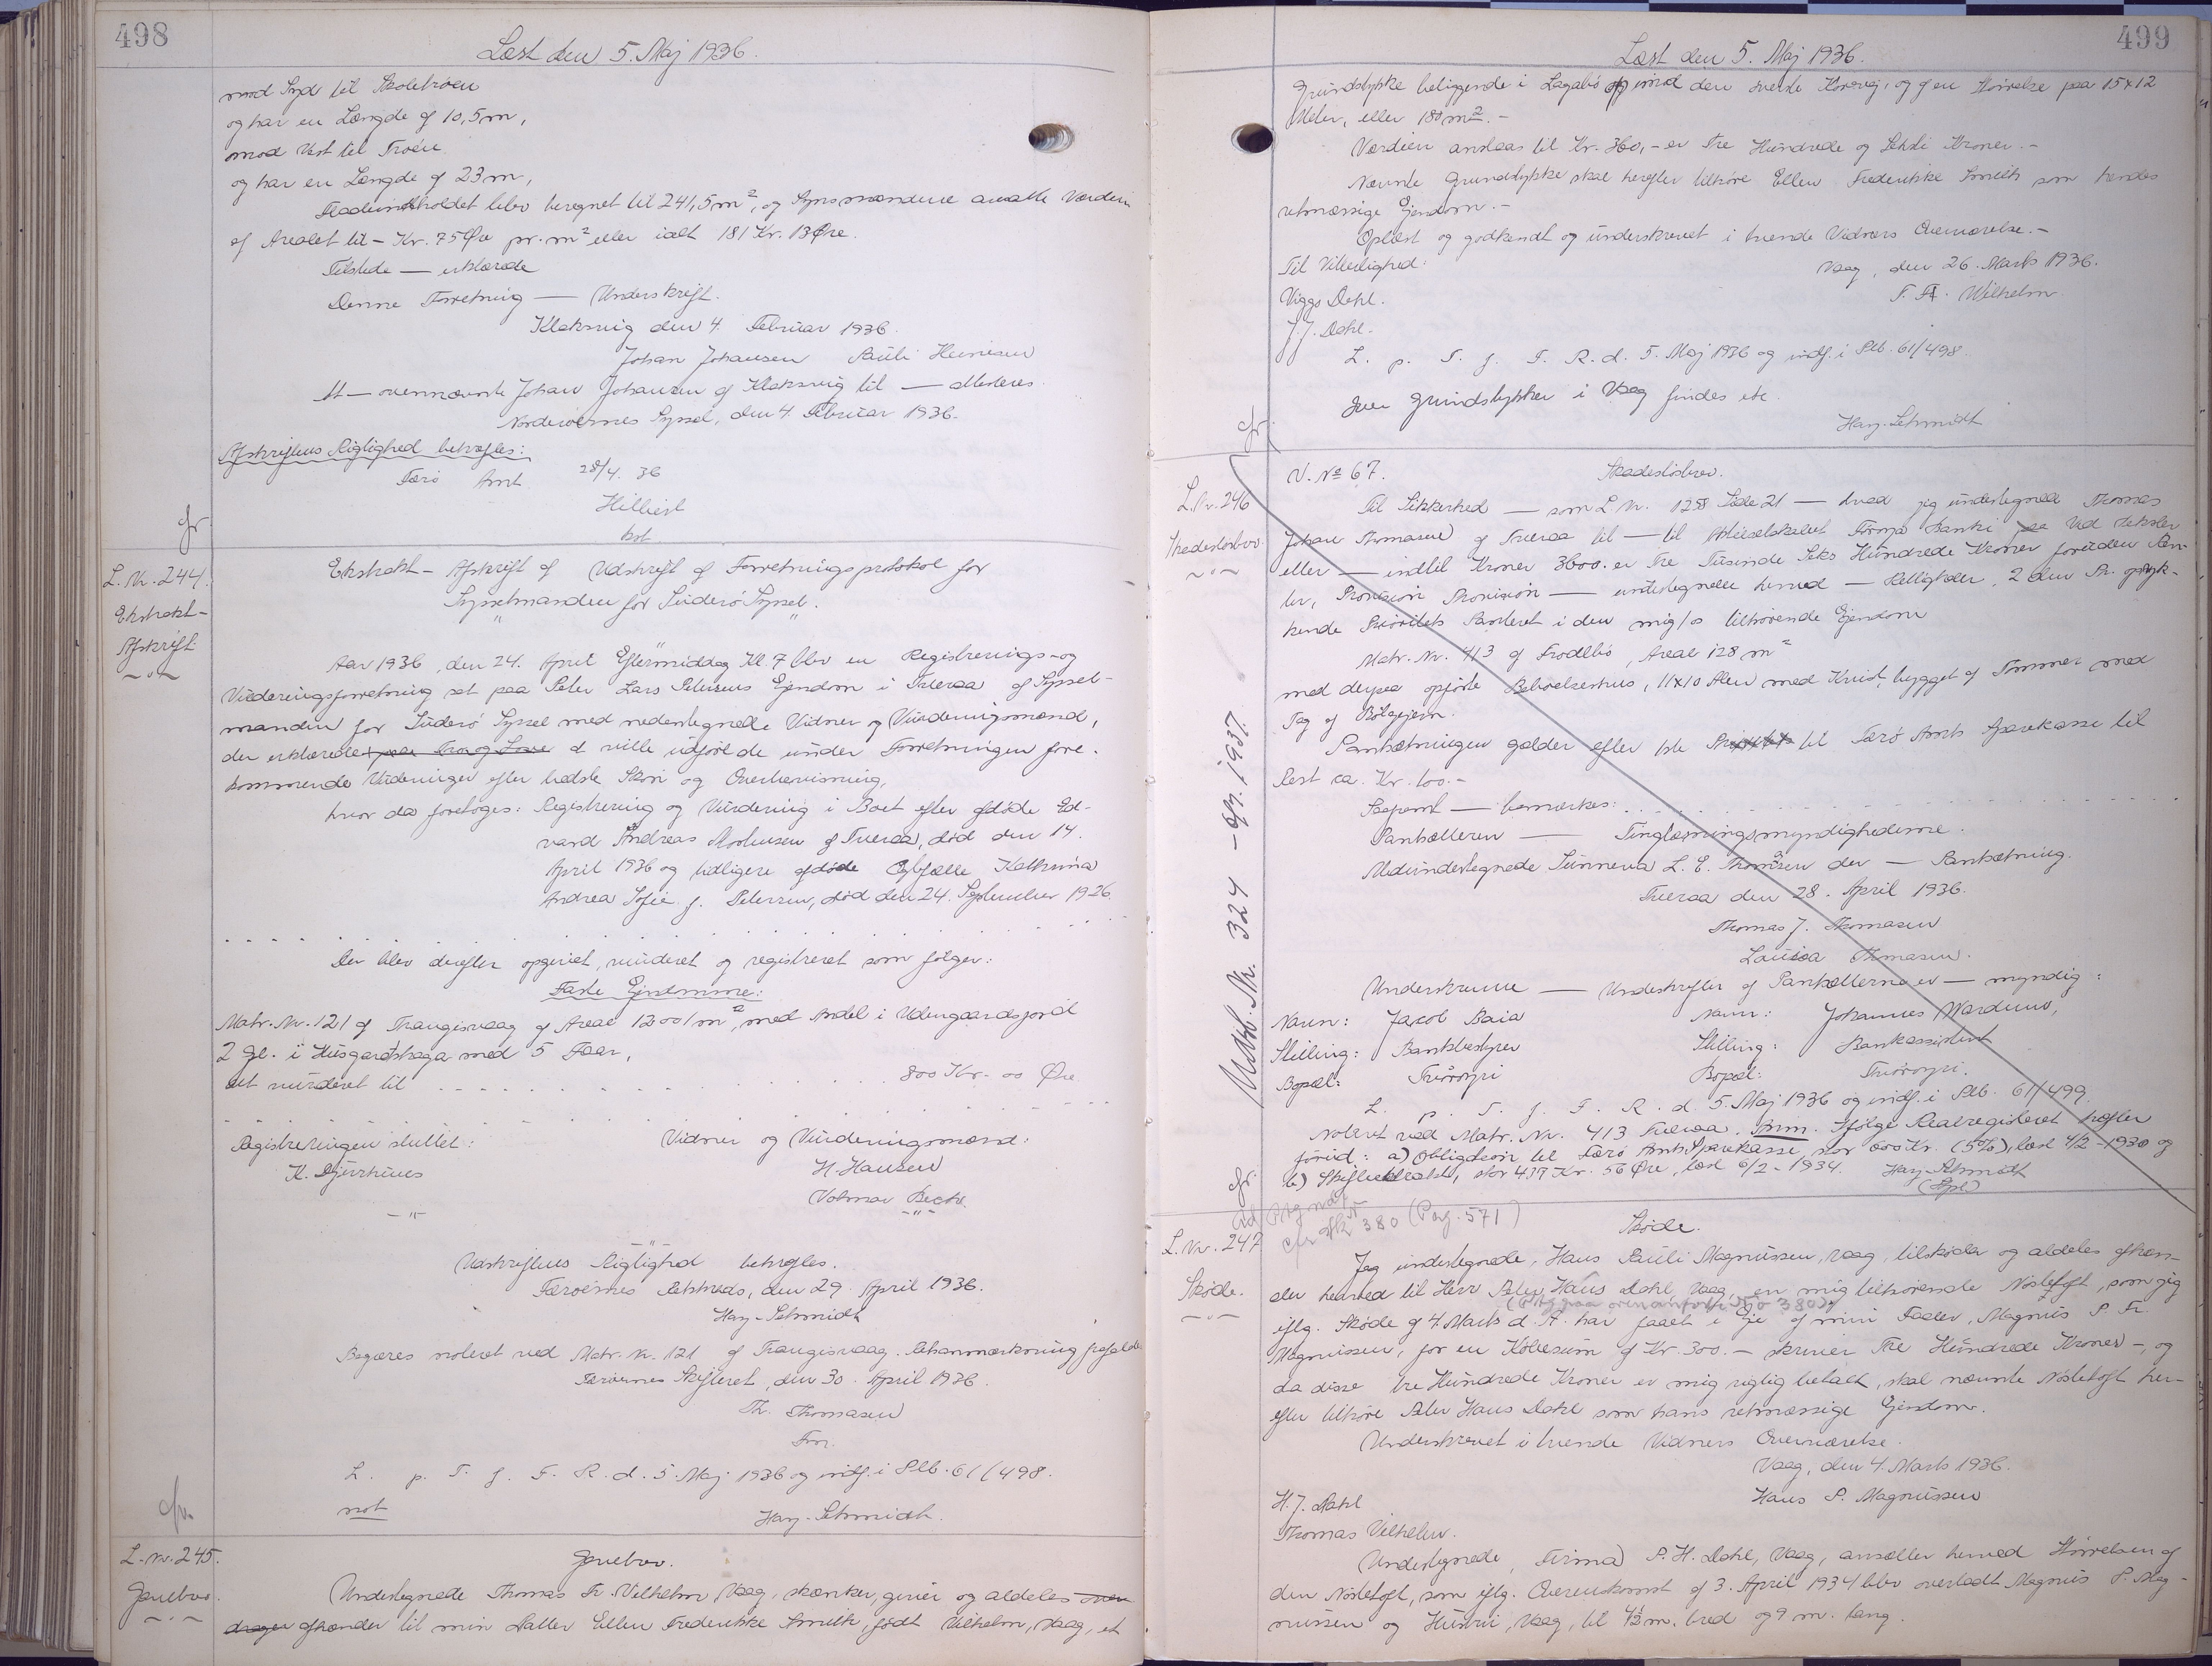 498
Læst den 5. Maj 1936.
mod Syd til Skoletröen
og har en Længde af 10,5 m,
mod Vest til Tróin
og har en Længde af 23 m,
Fladeindholdet blev beregnet til 241,5 m², og Synsmændene ansatte Værdien
af Arealet til - Kr. 75 Øre pr. m² eller ialt 181 Kr. 13 Øre.
Tilstede — erklærede
Denne Forretning — Underskrift.
Klaksvig den 4. Februar 1936.
Johan Johansen Pauli Heinesen
At — ovennævnte Johan Johansen af Klaksvig til — attesteres.
Norderøernes Syssel, den 4. Februar 1936.
Afskriftens Rigtighed bekræftes:
Færø Amt 28/4. 36
Hilbert
kst.
cfr.
L. Nr. 244.
Ekstrakt-
Afskrift
Ekstrakt - Afskrift af Udskrift af Forretningsprotokol for
Sysselmanden for Suderø Syssel.
Aar 1936, den 24. April Eftermiddag Kl. 7 blev en Registrerings- og
Vurderingsforretning sat paa Peter Lars Petersens Ejendom i Tveraa af Syssel-
manden for Suderø Syssel med nedentegnede Vidner og Vurderingsmænd,
der erklærede paa Tro og Love at ville udføre de under Forretningen fore-
kommende Vurderinger efter bedste Skøn og Overbevisning,
hvor da foretoges: Registrering og Vurdering i Boet efter afdøde Ed-
vard Andreas Mortensen af Tveraa, død den 14.
April 1936 og tidligere afdøde Ægtefælle Kathrina
Andrea Sofie f. Petersen, død den 24. September 1926.
Der blev derefter opgivet, vurderet og registreret som følger:
Faste Ejendomme:
Matr. Nr. 121 af Trangisvaag af Areal 12001 m², med Andel i Udengaardsjord
2 Gl. i Húsgardshaga med 5 Faar,
alt vurderet til . . . 800 Kr. 00 Øre
Registreringen sluttet: Vidner og Vurderingsmænd:
K. Djurhuus H. Hansen
Volmar Bech
Udskriftens Rigtighed bekræftes.
Færøernes Retskreds, den 29. April 1936.
Hay-Schmidt
Begæres noteret ved Matr. Nr. 121 af Trangisvaag. Retsanmærkning frafaldes
Færøernes Skifteret, den 30. April 1936.
Th. Thomasen
Fm.
L. p. T. f. F. R. d. 5. Maj 1936 og indf. i Plb. 61/498.
not Hay-Schmidt.
cfr.
L. nr. 245.
Gavebrev.
Gavebrev.
Undertegnede Thomas Fr. Vilhelm, Vaag, skænker, giver og aldeles over-
drager afhænder til min Datter Ellen Frederikke Smith, født Vilhelm, Vaag, et
499
Læst den 5. Maj 1936.
Grundstykke beliggende i Lagabø og imod den øverste Körevej, og af en Størrelse paa 15 x 12
Meter, eller 180 m². -
Værdien anslaas til Kr. 360,- er Tre Hundrede og Seksti Kroner. -
Nævnte Grundstykke skal herefter tilhøre Ellen Frederikke Smith som hendes
retmæssige Ejendom. -
Oplæst og godkendt og underskrevet i tvende Vidners Overværelse. -
Til Vitterlighed: Vaag, den 26. Marts 1936.
Viggo Dahl. T. Fr. Wilhelm
J. J. Dahl.
L. p. T. f. F. R. d. 5. Maj 1936 og indf. i Plb. 61/498.
Over Grundstykker i Vaag findes etc.
Hay-Schmidt
cfr.
L. Nr. 246
Skadesløsbrev.
V. No 67. Skadesløsbrev.
Til Sikkerhed — som L Nr. 1258 Side 21 — hvad jeg undertegnede Thomas
Johan Thomasen af Tveraa til — til Aktieselskabet Føroya Banki pr. Ved Veksler
eller — indtil Kroner 3600. er Tre Tusinde Seks Hundrede Kroner foruden Ren-
ter, Provision — undertegnede herved — Helligdele, 2 den Pr. opryk-
kende Prioritets Panteret i den mig/os tilhørende Ejendom
Matr. Nr. 413 af Frodebö, Areal 128 m²
med derpaa opførte Beboelseshus, 11x10 Alen med Kvist, bygget af Tømmer med
Tag af Bölgejern.
Pantsætningen gælder efter 1ste Prioritet til Færø Amts Sparekasse til
Rest ca. Kr. 600.-
Særpant — bemærkes: . . .
Pantsætteren — Tinglæsningsmyndighederne.
Medundertegnede Sunneva L. E. Thomsen der — Pantsætning.
Tveraa den 28. April 1936.
Thomas J. Thomasen
Louisa Thomasen.
Underskrevne — Underskrifter af Pantsætterne er — myndig:
Navn: Jacob Baia Navn: Johannes Mardum,
Stilling: Bankbestyrer Stilling: Bankassistent
Bopæl: Tvöroyri Bopæl: Tvöroyri.
L. p. T. f. F. R. d. 5. Maj 1936 og indf. i Plb. 61/499.
Noteret ved Matr. Nr. 413 Tveraa. Anm. Ifölge Realregisteret hæfter
forud: a) Obligation til Færø Amts Sparekasse, stor 600 Kr. (5%), læst 4/2 - 1930 og
b) Skifteekstrakt, stor 439 Kr. 56 Øre, læst 6/2 - 1934. Hay-Schmidt
(Gpl)
Udsl. L. Nr. 324 - 9/9. 1937.
cfr.
cfr 380 (Pag. 571)
L. Nr. 247
Skøde.
Skøde.
Jeg undertegnede, Hans Pauli Magnussen, Vaag, tilskøder og aldeles afhæn-
der herved til Herr Peter Hans Dahl, Vaag, en mig tilhørende Nöstetoft, som jeg
iflg. Skøde af 4. Marts d. A. har faaet i Eje af min Fader, Magnus P. Fr.
Magnussen, for en Købesum af Kr. 300. - skriver Tre Hundrede Kroner -, og
da disse tre Hundrede Kroner er mig rigtig betalt, skal nævnte Nöstetoft her-
efter tilhøre Peter Hans Dahl som hans retmæssige Ejendom.
Underskrevet i tvende Vidners Overværelse.
Vaag, den 4. Marts 1936.
H. J. Dahl Hans P. Magnussen
Thomas Vilhelm.
Undertegnede, Firma P. H. Dahl, Vaag, ansætter herved Størrelsen af
den Nöstetoft, som iflg. Overenskomst af 3. April 1934 blev overladt Magnus P. Mag-
nussen og Hustru, Vaag, til 4½ m. bred og 9 m. lang.